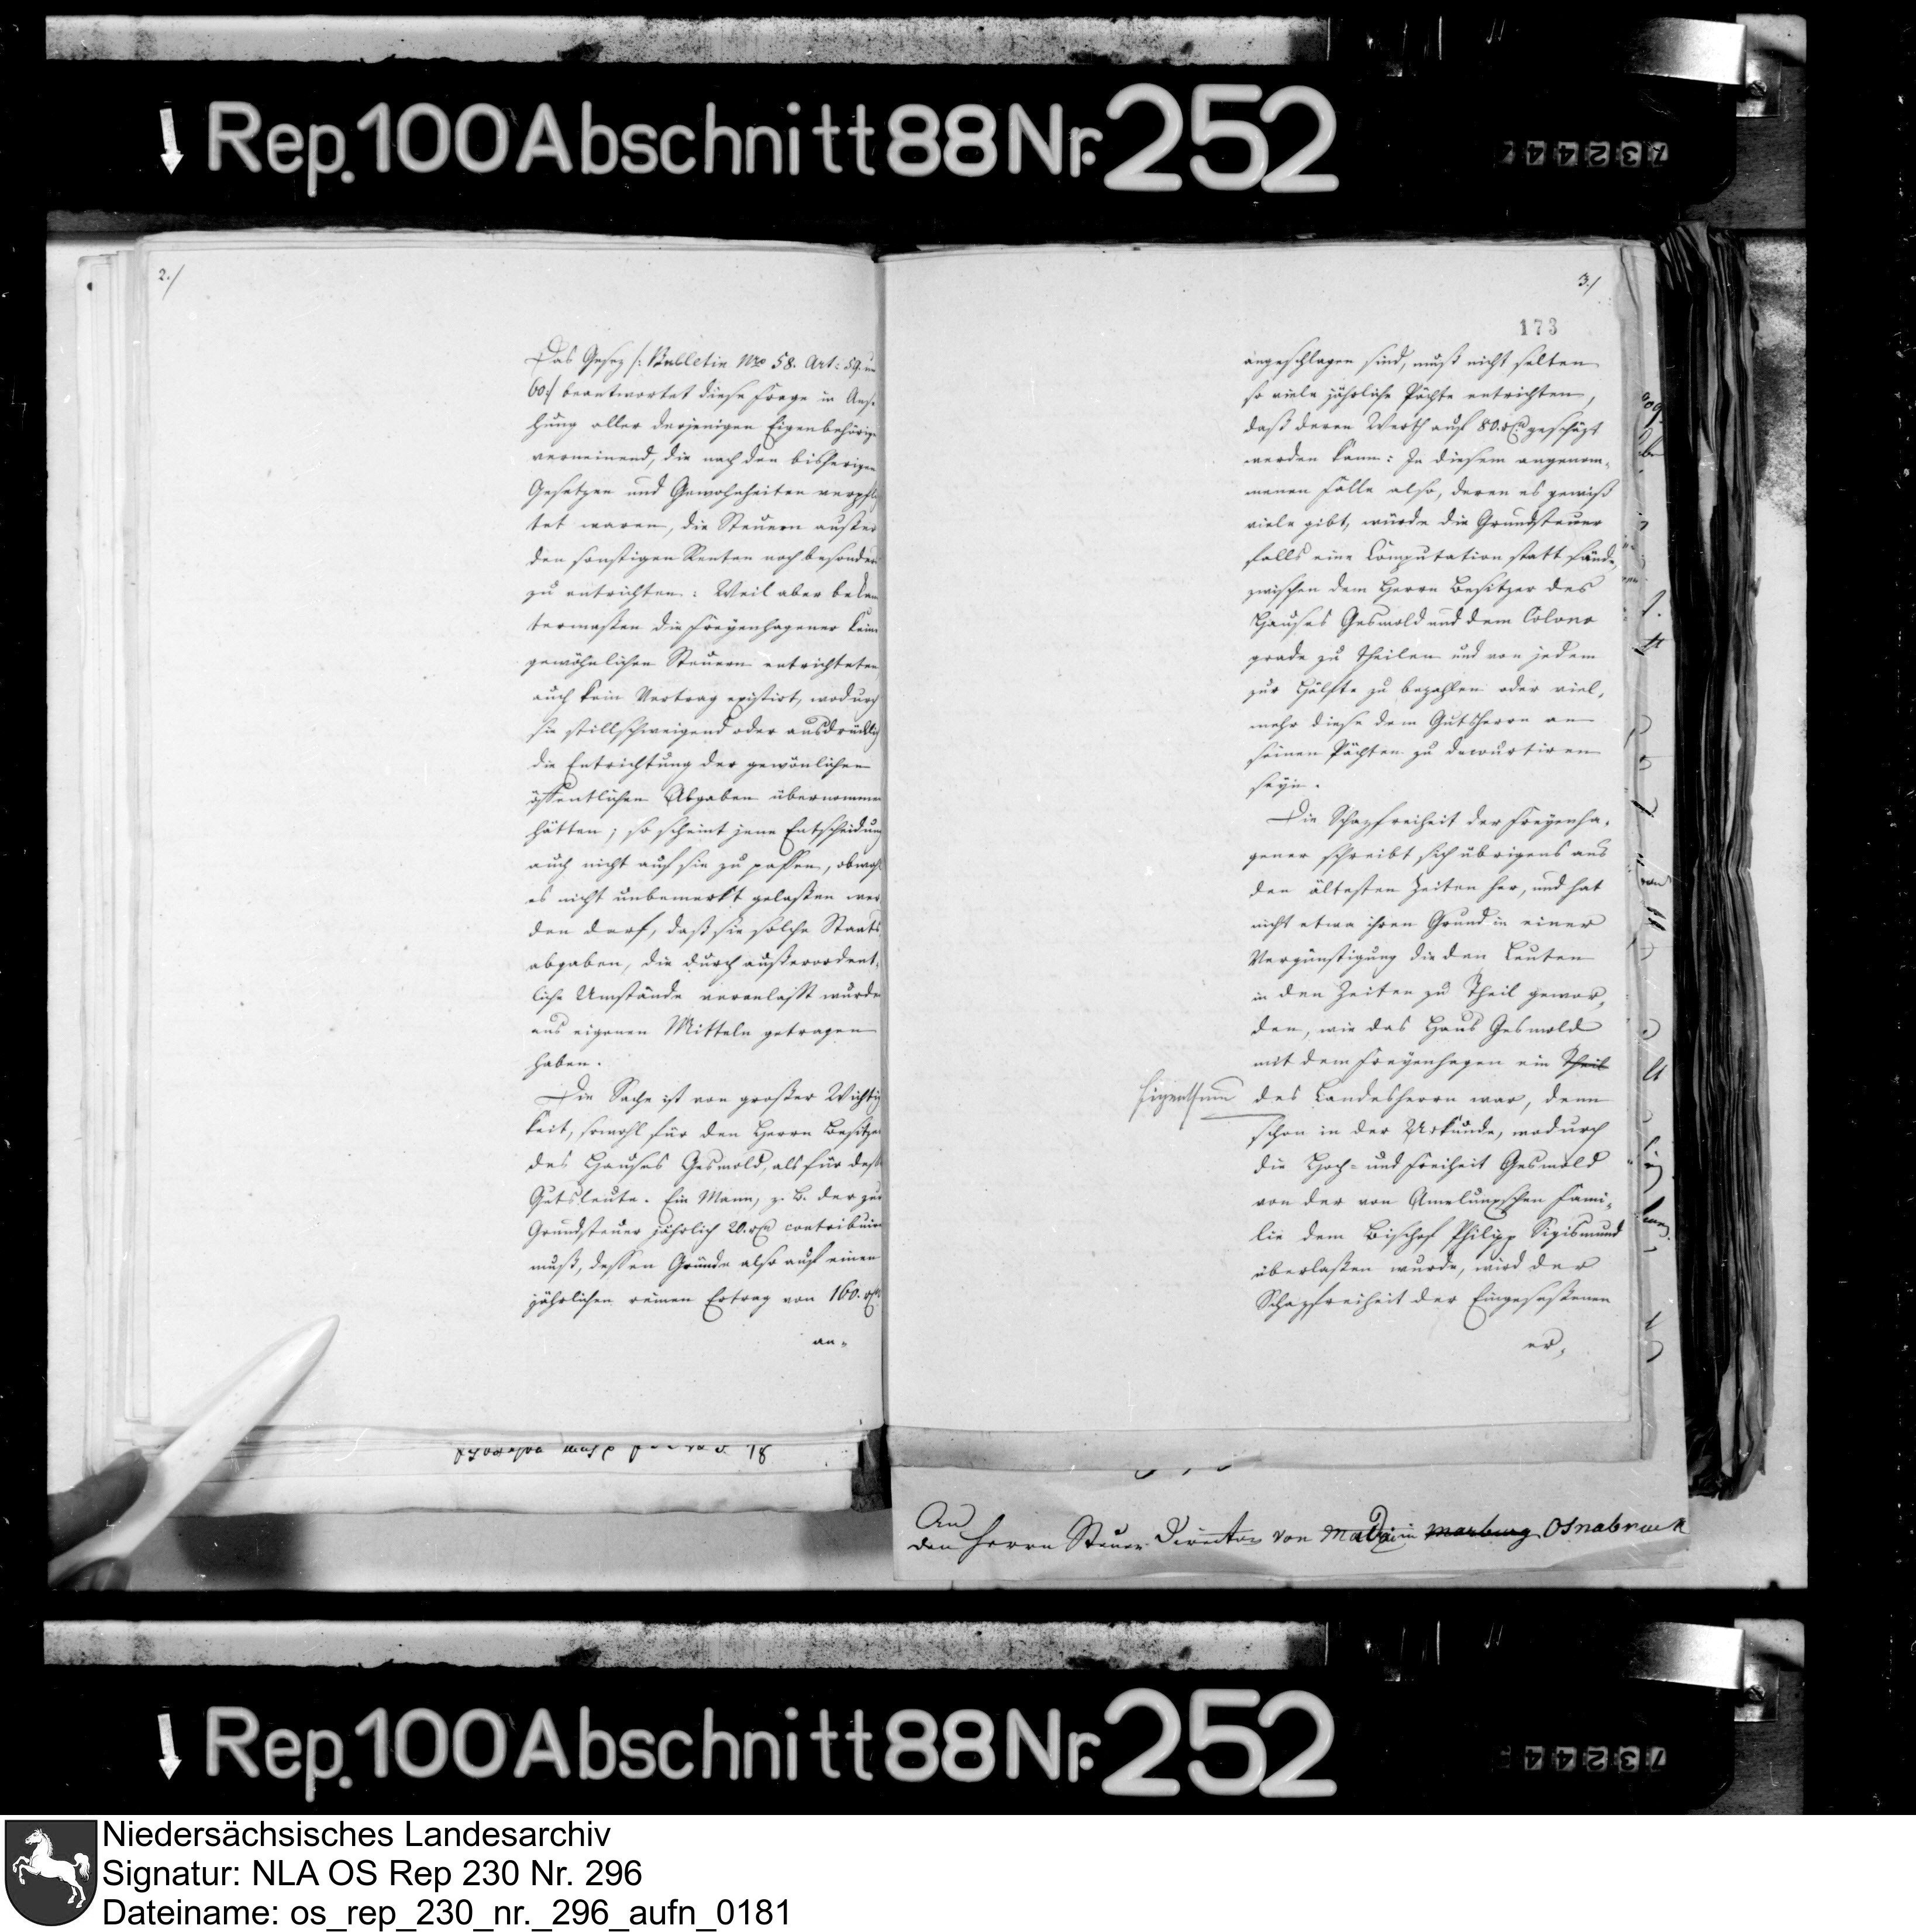 Rep. 100 Abschnitt 88 Nr. 252
73244
2./
Das Gesez /: Bulletin Nro 58. Art: 59. u
60:/ beantwortet diese Frage in Anse-
hung aller derjenigen Eigenbehörigen
verneinend, die nach den bisherigen
Gesetzen und Gewohnheiten verpfl
tet waren, die Steuern ausser
den sonstigen Renten noch besonder
zu entrichten: Weil aber bekan
termaßen die Freyenhagener kein
gewöhnlichen Steuern entrichteten
auch kein Vertrag existirt, wodurch
sie stillschweigend oder ausdrücklich
die Entrichtung der gewönlichen
öffentlichen Abgaben übernommen
hätten; so scheint jene Entscheidung
auch nicht auf sie zu passen, obwohl
es nicht unbemerkt gelaßen wer
den darf, daß sie solche Staats
abgaben, die durch außerordent-
liche Umstände veranlaßt wurden
aus eigenen Mitteln getragen
haben.
Die Sache ist von großer Wichtig
keit, sowohl für den Herrn Besitzer
des Hauses Gesmold, als für dess
Gutsleute. Ein Mann, z. B. der zur
Grundsteuer jährlich 20. rthl contribuir
muß, dessen Gründe also auf einen
jährlichen reinen Ertrag von 160. rthl
an-
3./
173
angeschlagen sind, muß nicht selten
so viele jährliche Pächte entrichten,
daß deren Werth auf 80. rthl geschäzt
werden kann: In diesem angenom-
menen Falle also, deren es gewiß
viele gibt, würde die Grundsteuer
falls eine Computation statt fände,
zwischen dem Herrn Besitzer des
Hauses Gesmold und dem Colono
grade zu theilen und von jedem
zur Hälfte zu bezahlen oder viel-
mehr diese dem Gutsherrn an
seinen Pächten zu decourtiren
seyn.
Die Schazfreiheit der Freyenha-
gener schreibt sich übrigens aus
den ältesten Zeiten her, und hat
nicht etwa ihren Grund in einer
Vergünstigung die den Leuten
in den Zeiten zu Theil gewor-
den, wie das Haus Gesmold
mit dem Freyenhagen ein Theil
Eigenthum des Landesherrn war, denn
schon in der Urkunde, wodurch
die Hoch- und Freiheit Gesmold
von der von Amelunxschen Fami-
lie dem Bischof Philipp Sigismund
überlaßen wurde, wird der
Schazfreiheit der Eingesessenen
er-
An
den Herrn Steuer Director von Madai in Marburg Osnabrück
Rep. 100 Abschnitt 88 Nr. 252
73244
Niedersächsisches Landesarchiv
Signatur: NLA OS Rep 230 Nr. 296
Dateiname: os_rep_230_nr._296_aufn_0181